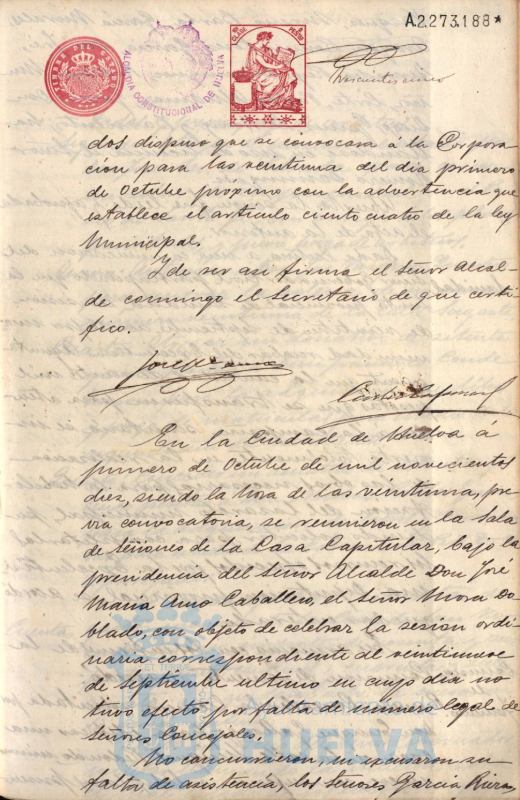 A.2.273.188*
TIMBRE DEL ESTADO
ALCALDÍA CONSTITUCIONAL DE HUELVA
dos dispuso que se convocara á la Corpora
ción para las veintiuna del dia primero
de Octubre próximo con la advertencia que
establece el artículo ciento cuatro de la ley
Municipal.
Y de ser asi firma el Señor Alcal-
de conmigo el Secretario de que certi-
fico.
En la Ciudad de Huelva á
primero de Octubre de mil novecientos
diez, siendo la hora de las veintiuna, pre-
via convocatoria, se reunieron en la Sala
de Sesiones de la Casa Capitular, bajo la
presidencia del Señor Alcalde Don José
María Amo Caballero, el Señor Mora Do
blado, con objeto de celebrar la sesión ordi
naria correspondiente al veintinueve
de Septiembre ultimo en cuyo dia no
tuvo efecto por falta de numero legal de
Señores Concejales.
HUELVA
No concurrieron, ni excusaron su
falta de asistencia, los Señores García Rivera,